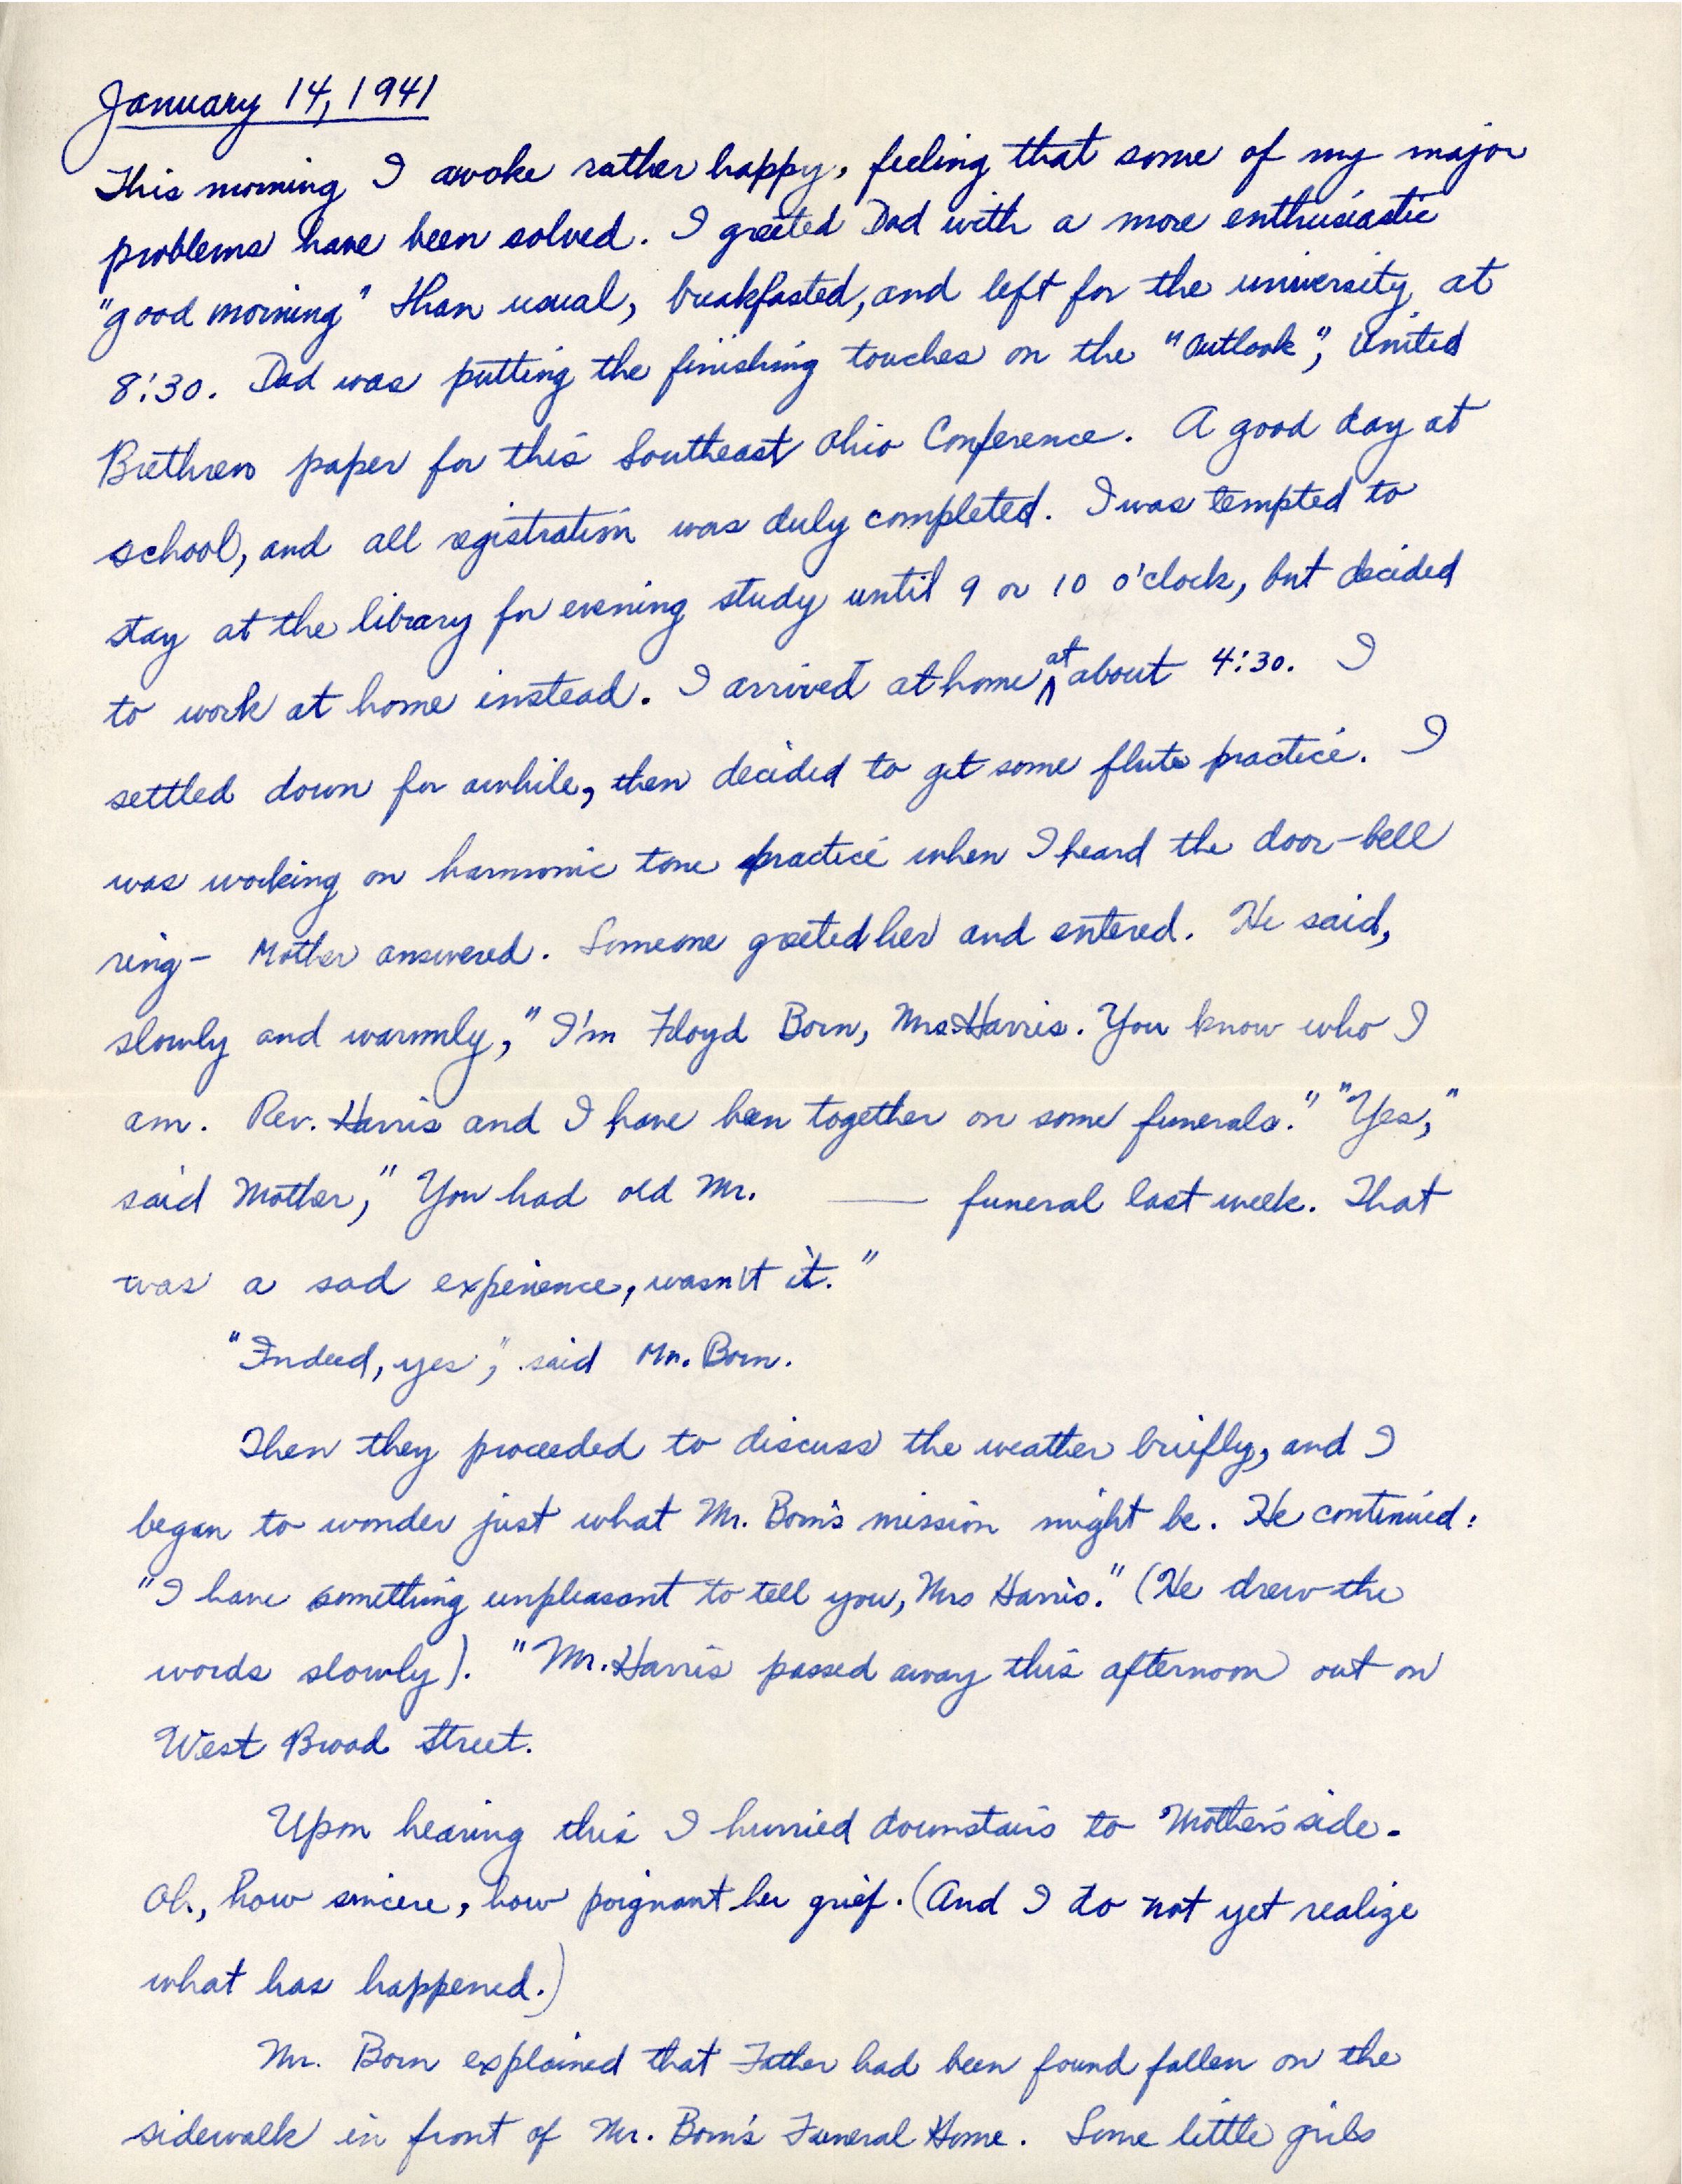 January 14, 1941
This morning I awoke rather happy, feeling that some of my major
problems have been solved. I greeted Dad with a more enthusiastic
"good morning" than usual, breakfasted, and left for the university at
8:30. Dad was putting the finishing touches on the "Outlook", United
Brethren paper for this Southeast Ohio Conference. A good day at
school, and all registration was duly completed. I was tempted to
stay at the library for evening study until 9 or 10 o'clock, but decided
to work at home instead. I arrived at home at about 4:30. I
settled down for awhile, then decided to get some flute practice. I
was working on harmonic tone practice when I heard the door-bell
ring- Mother answered. Someone greeted her and entered. He said,
slowly and warmly, "I'm Floyd Born, Mrs. Harris. You know who I
am. Rev. Harris and I have been together on some funerals." "Yes,"
said Mother, "You had old Mr. —— funeral last week. That
was a sad experience, wasn't it."
"Indeed, yes", said Mr. Born.
Then they proceeded to discuss the weather briefly, and I
began to wonder just what Mr. Born's mission might be. He continued:
"I have something unpleasant to tell you, Mrs Harris." (He drew the
words slowly). "Mr. Harris passed away this afternoon out on
West Broad Street.
Upon hearing this I hurried downstairs to Mother's side.
Oh, how sincere, how poignant her grief. (And I do not yet realize
what has happened.)
Mr. Born explained that Father had been found fallen on the
sidewalk in front of Mr. Born's Funeral Home. Some little girls